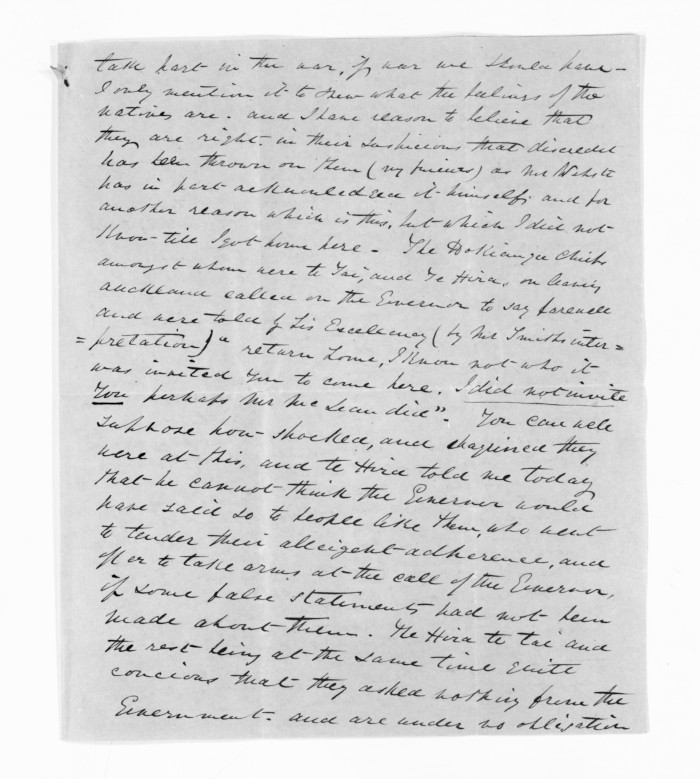 take part in the war, if war we should have -
I only mention it to shew what the feelings of the
natives are. and I have reason to believe that
they are right in their suspicions that discredit
has been thrown on them (my friends) as Mr Webste
has in part acknowledged it himself; and for
another reason which is this, but which I did not
know till I got home here - The Hokianga Chiefs
amongst whom were te Tai, and Te Hira, on leaving
Auckland called on the Governor to say farewell
and were told by His Excellency (by Mr Smiths inter=
=pretation) " return home, I know not who it
was invited you to come here. I did not invite
You perhaps Mr McLean did". You can well
suppose how shocked, and chagrined they
were at this, and te Hira told me today
that he cannot think the Governor would
have said so to people like them, who went
to tender their allegient adherence, and
offer to take arms at the call of the Governor,
if some false statements had not been
made about them. Te Hira te Tai and
the rest being at the same time quite
concious that they asked nothing from the
Government. and are under no obligation